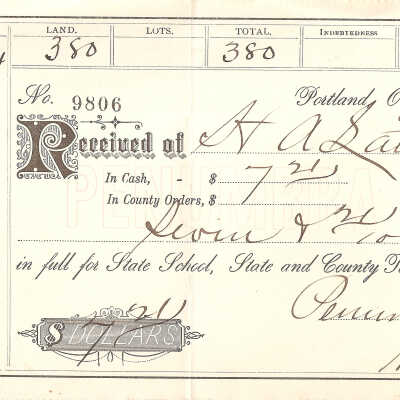 LAND. LOTS. TOTAL. INDEBTEDNESS
380 380
No. 9806 Portland, O
Received of H A
In Cash, - $ 7 21
In County Orders, $
Seven & 21
in full for State School, State and County
$ DOLLARS 7 21